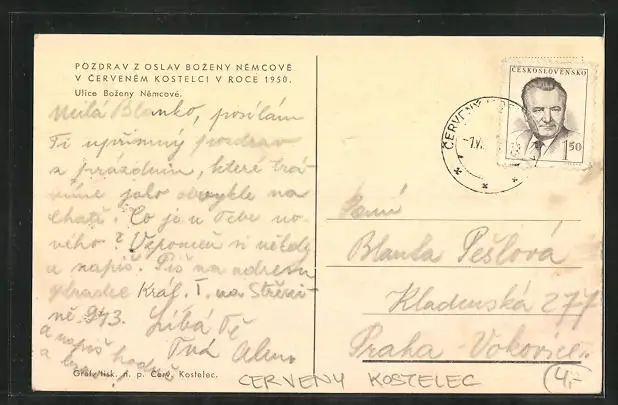 POZDRAV Z OSLAV BOŽENY NĚMCOVÉ
V ČERVENÉM KOSTELCI V ROCE 1950.
Ulice Boženy Němcové.
Milá Blanko, posílám
Ti upřímný pozdrav
z prázdnin, které trá-
víme jako obvykle na
chatě. Co je u Tebe no-
vého? Vzpomeň si někdy
a napiš. Piš na adresu
Hradec Král. I. na Střezi-
ně 973. Líbá Tě
Tvá Alena
a napiš hodně
a
Grafotisk. n. p. Červ. Kostelec.
ČESKOSLOVENSKO
1 50
ČERVENÝ
Paní
Blanka Pešlová
Kladenská 277
Praha - Vokovice.
CERVENY KOSTELEC
4,-